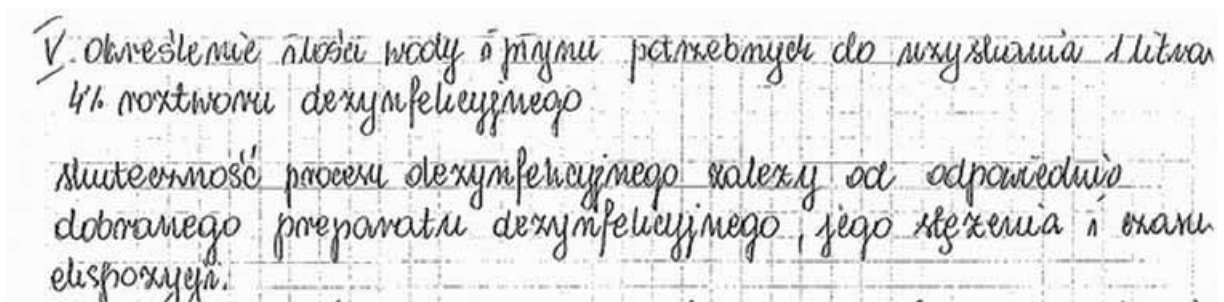 V. Określenie ilości wody i płynu potrzebnych do uzyskania 1 litra
4% roztworu dezynfekcyjnego
skuteczność procesu dezynfekcyjnego zależy od odpowiednio
dobranego preparatu dezynfekcyjnego, jego stężenia i czasu
ekspozycji.